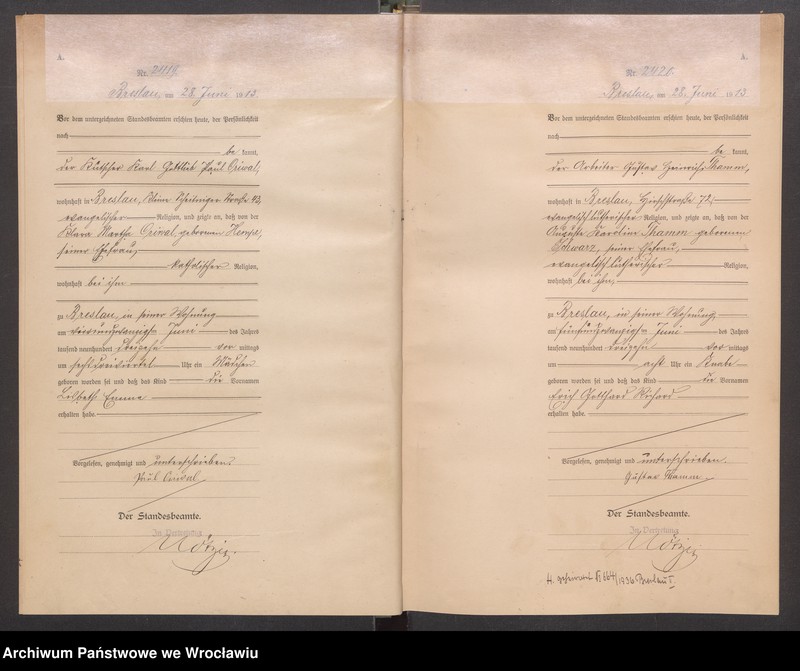 A.
Nr. 2419.
Breslau, am 28. Juni 1913
Vor dem unterzeichneten Standesbeamten erschien heute, der Persönlichkeit
nach
be kannt,
der Kutscher Karl Gottlieb Paul
wohnhaft in Breslau, 42,
evangelischer Religion, und zeigte an, daß von der
Klara Martha geborenen
seiner Ehefrau,
katholischer Religion,
wohnhaft bei ihm
zu Breslau, in seiner Wohnung
am vierundzwanzigsten Juni des Jahres
tausend neunhundert dreizehn vor mittags
um sechs dreiviertel Uhr ein Mädchen
geboren worden sei und daß das Kind die Vornamen
Lisbeth Emma
erhalten habe.
Vorgelesen, genehmigt und unterschrieben.
Paul
Der Standesbeamte.
In Vertretung
A.
Nr. 2420.
Breslau, am 28. Juni 1913
Vor dem unterzeichneten Standesbeamten erschien heute, der Persönlichkeit
nach
be kannt,
der Arbeiter Gustav Heinrich Thamm,
wohnhaft in Breslau, Hirschstraße 72,
evangelisch lutherischer Religion, und zeigte an, daß von der
Auguste Karoline Thamm geborenen
Schwarz, seiner Ehefrau,
evangelisch lutherischer Religion,
wohnhaft bei ihm,
zu Breslau, in seiner Wohnung
am fünfundzwanzigsten Juni des Jahres
tausend neunhundert dreizehn vor mittags
um acht Uhr ein Knabe
geboren worden sei und daß das Kind die Vornamen
Erich Gotthard Richard
erhalten habe.
Vorgelesen, genehmigt und unterschrieben.
Gustav Thamm
Der Standesbeamte.
In Vertretung
H. geheiratet 664/1936 Breslau I.
Archiwum Państwowe we Wrocławiu